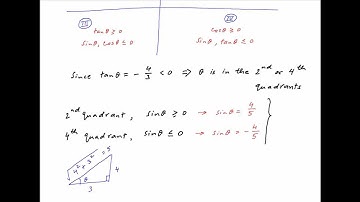 III
IV
tanθ ≥ 0
cosθ ≥ 0
sinθ, cosθ ≤ 0
sinθ, tanθ ≤ 0
Since tanθ = - 4/3 < 0 ⇒ θ is in the 2nd or 4th
quadrants
2nd quadrant, sinθ ≥ 0 → sinθ = 4/5
4th quadrant, sinθ ≤ 0 → sinθ = - 4/5
√4² + 3² = 5
4
θ
3